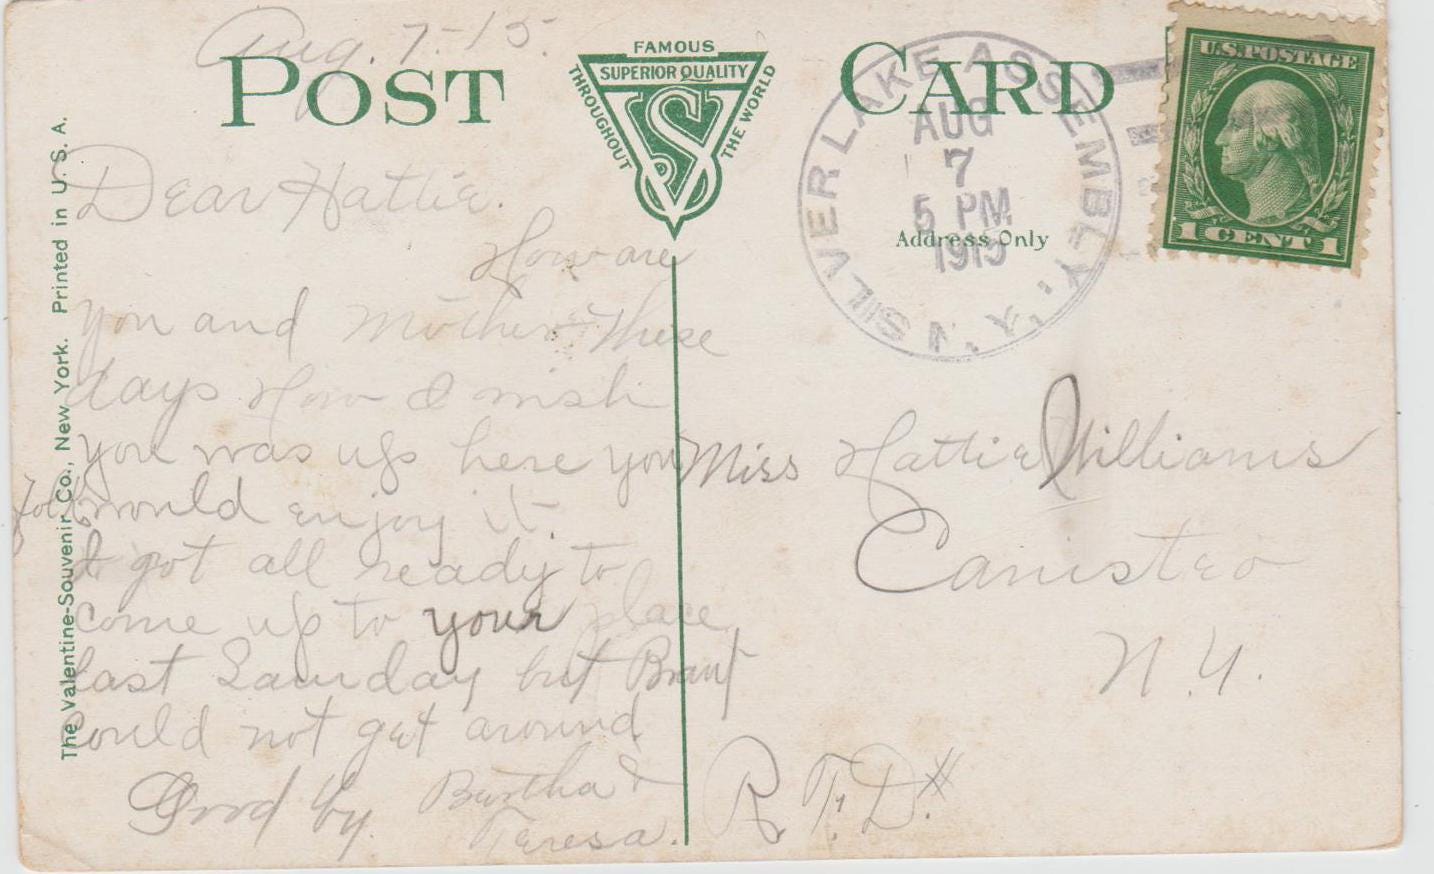 Aug. 7-15.
POST CARD
FAMOUS
SUPERIOR QUALITY
THROUGHOUT
THE WORLD
VS
SILVER LAKE ASSEMBLY. N.Y.
AUG
7
5 PM
1915
U.S. POSTAGE
1 CENT 1
Address Only
The Valentine-Souvenir Co., New York. Printed in U. S. A.
Dear Hattie.
How are
you and Mother these
days How I wish
you was up here you
would enjoy it.
I got all ready to
come up to your place
last Saurday but Brant
could not get around
Good by. Bertha &
Teresa.
Miss Hattie Williams
Canisteo
N.Y.
R.F.D.#